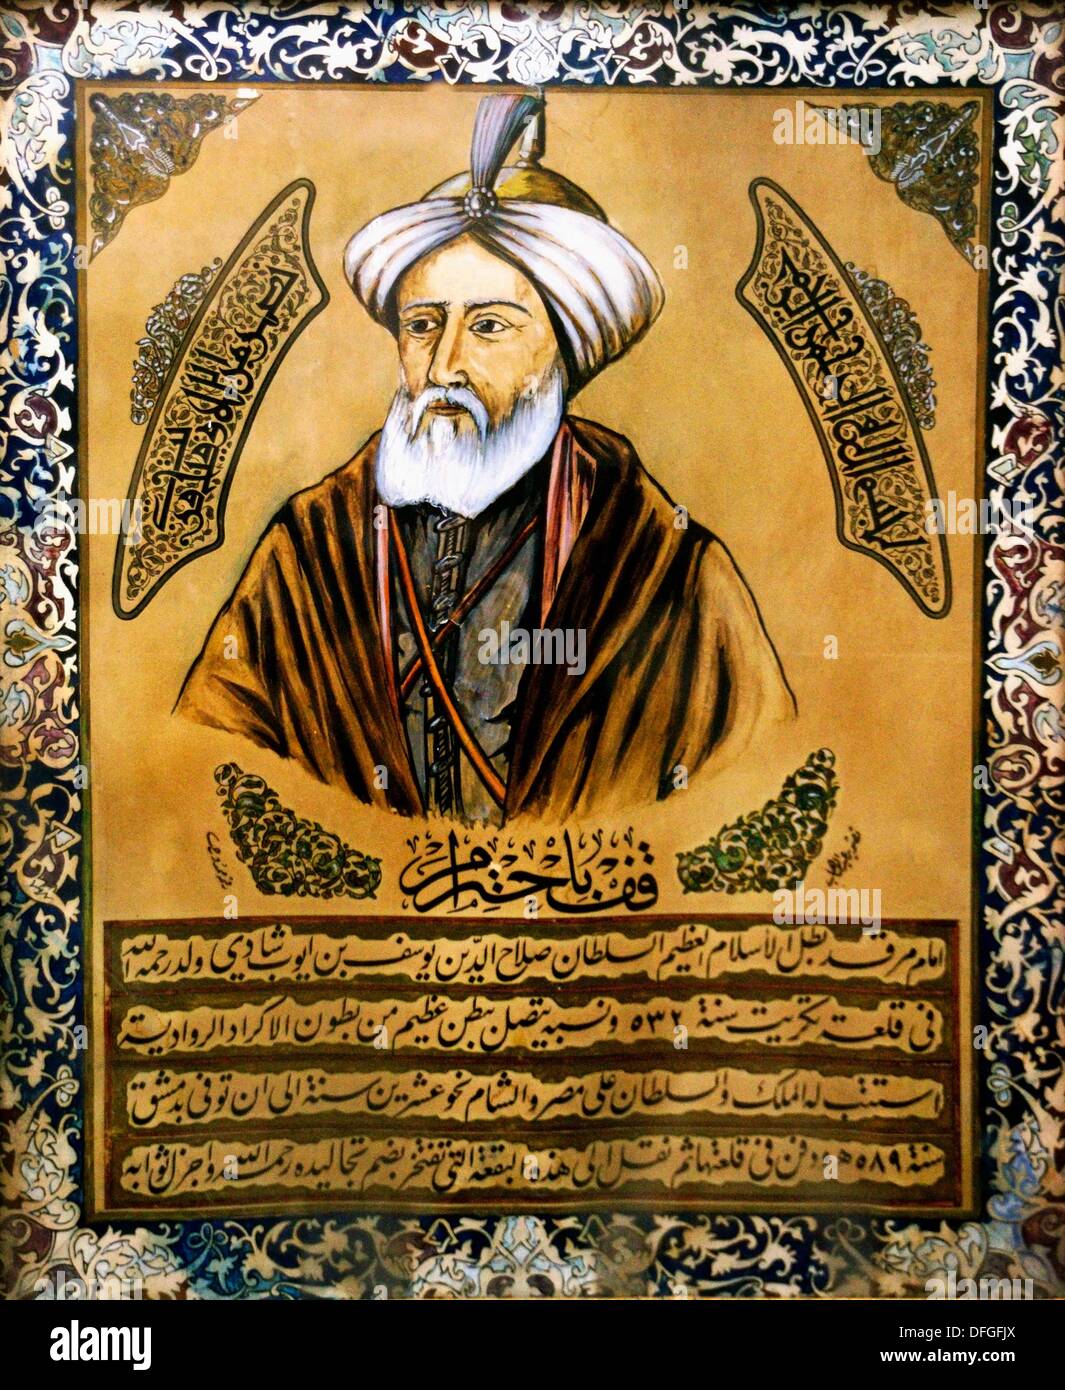 بسم الله الرحمن الرحيم
نصر من الله وفتح قريب
قف باحترام
امام مرقد بطل الاسلام العظيم السلطان صلاح الدين يوسف بن ايوب شادي ولد رحمه الله
في قلعة تكريت سنة ٥٣٢ ونسبه يتصل ببطن عظيم من بطون الاكراد الروادية
استتب له الملك والسلطان على مصر والشام نحو عشرين سنة الى ان توفي بدمشق
سنة ٥٨٩ هـ ودفن في قلعتها ثم نقل الى هذه البقعة التي تفتخر بضم تجاليده رحمه الله واجزل ثوابه
alamy
alamy
Image ID: DFGFJX
www.alamy.com